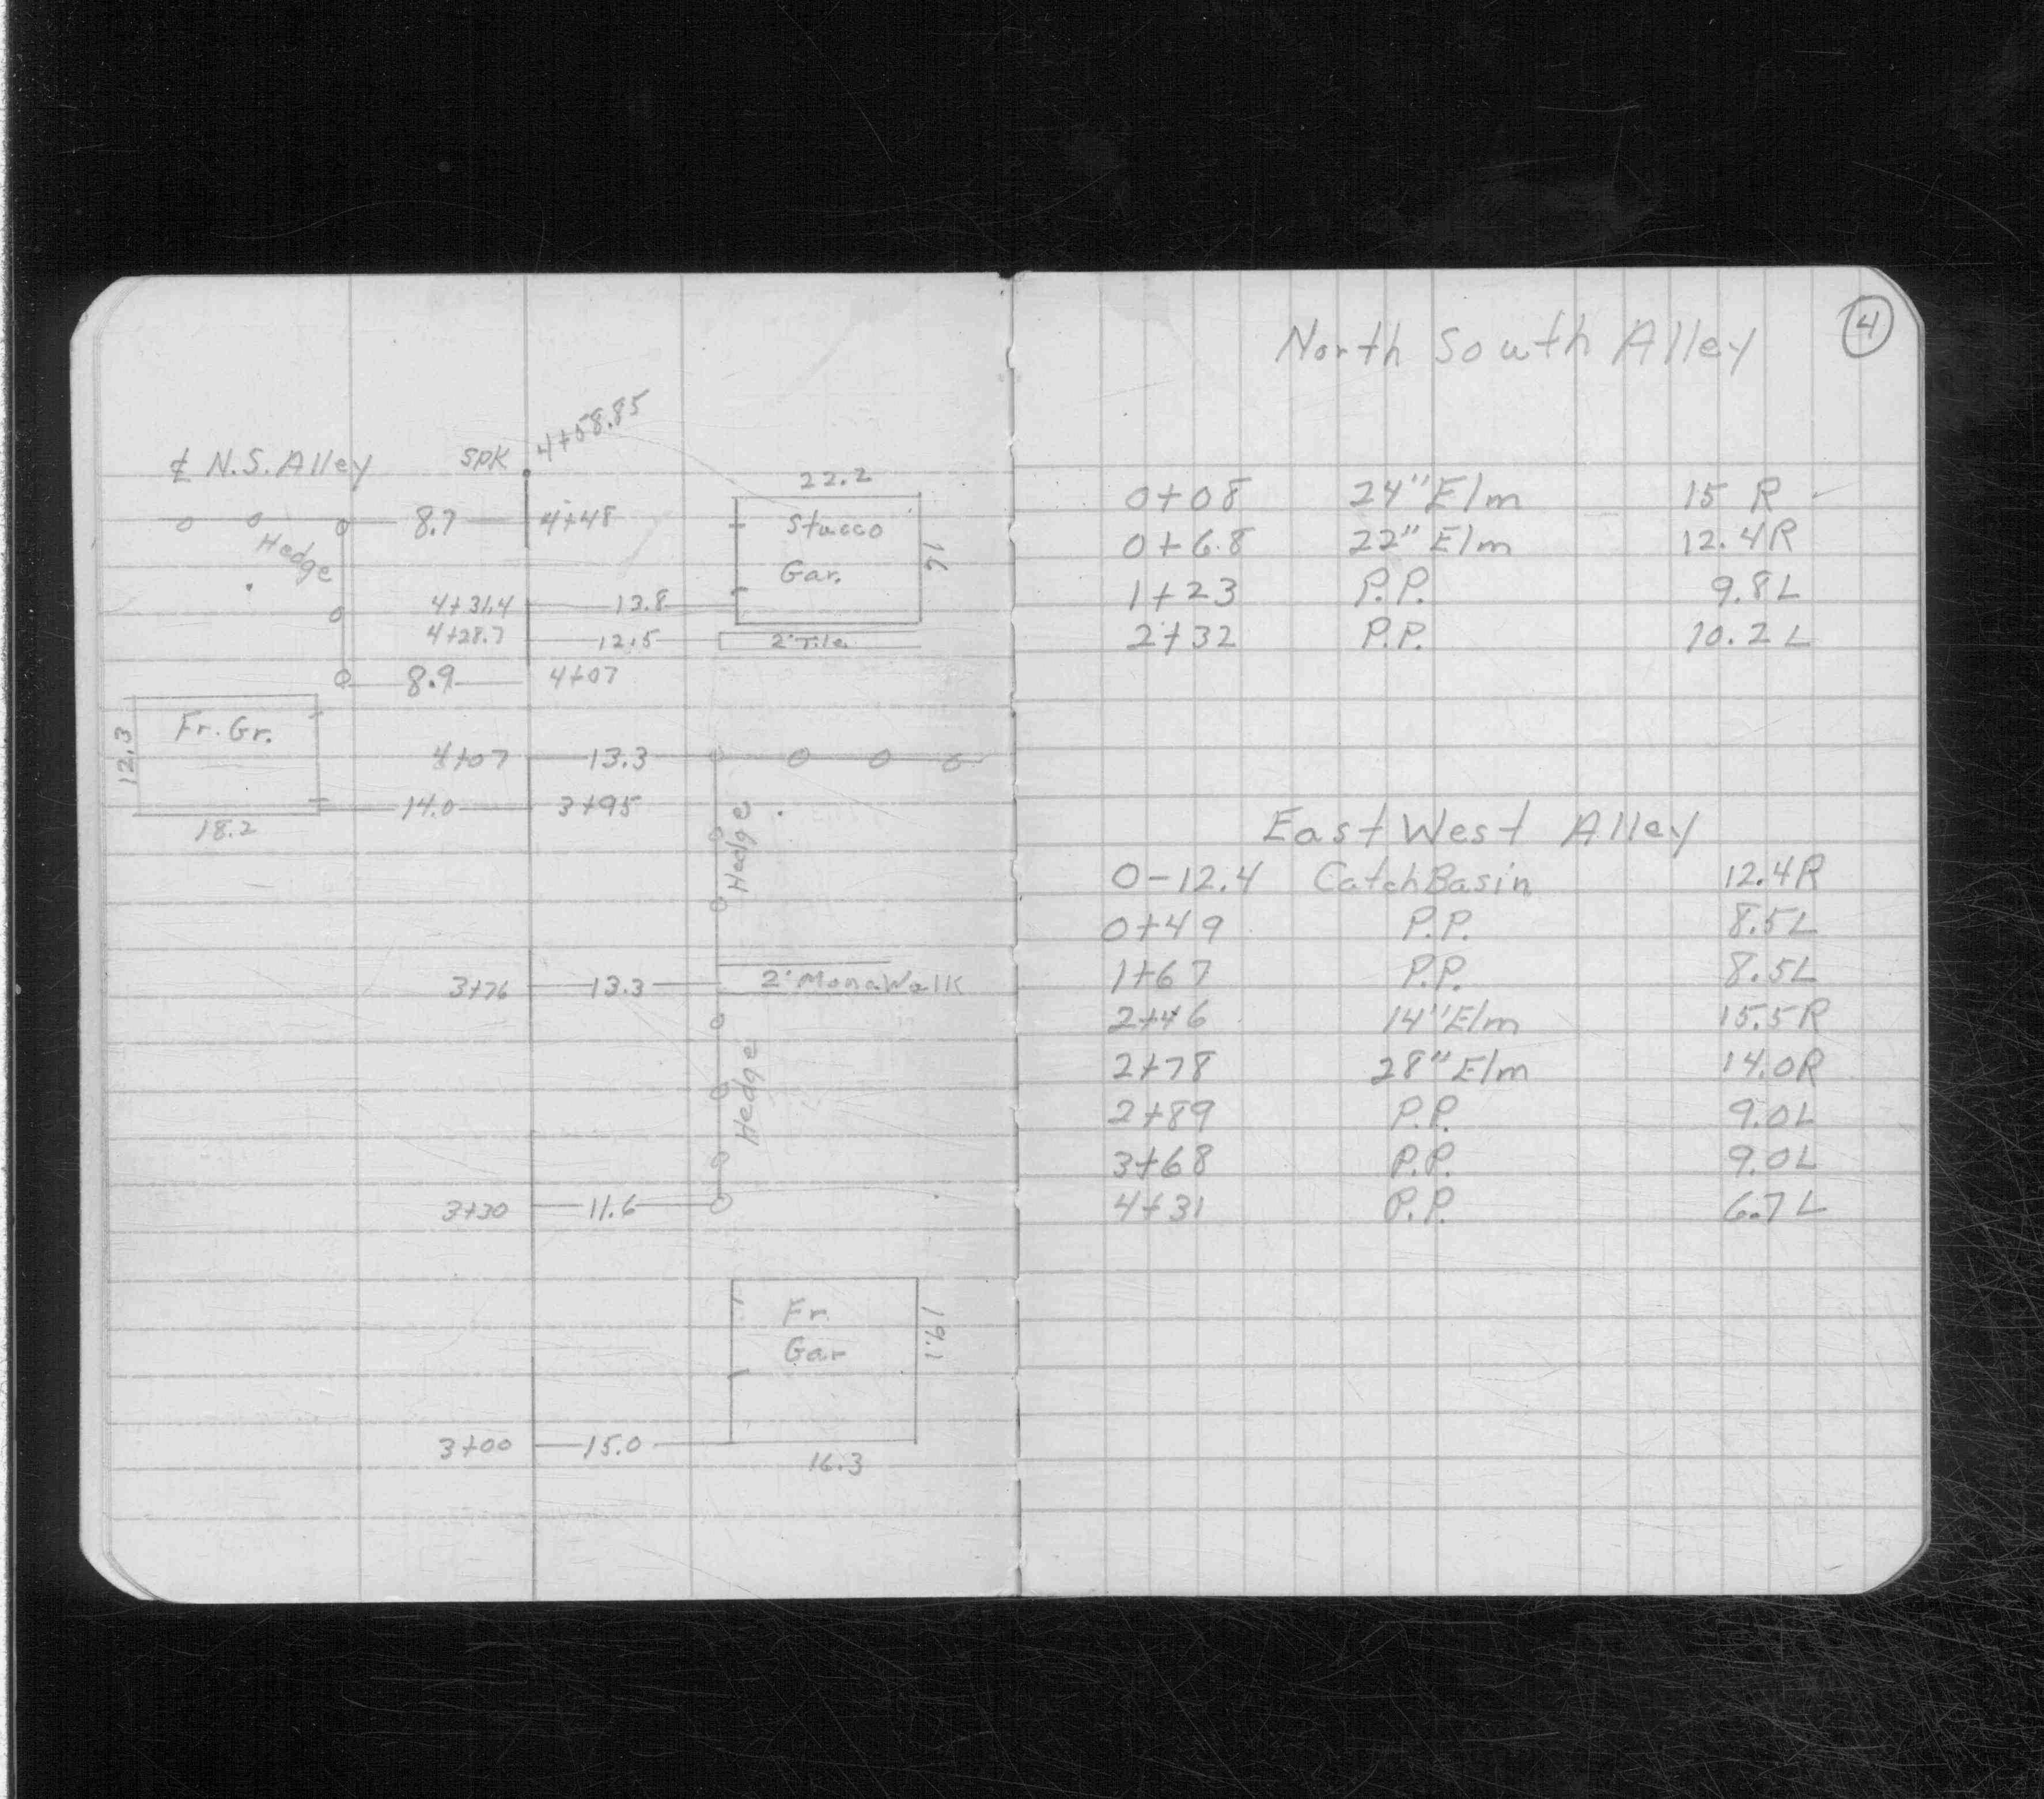 4+58.85
℄ N.S. Alley SPK
22.2
8.7 4+48 Stucco
Hedge 16
Gar.
4+31.4 13.8
4+28.7 12.5 2' Tile
8.9 4+07
Fr. Gr.
12.3
4+07 13.3
14.0 3+95
18.2
Hedge
3+76 13.3 2' Mono Walk
Hedge
3+30 11.6
Fr.
19.1
Gar
3+00 15.0
16.3
4
North South Alley
0+08 24" Elm 15 R
0+6.8 22" Elm 12.4R
1+23 P.P. 9.8L
2+32 P.P. 10.2L
East West Alley
0-12.4 Catch Basin 12.4R
0+49 P.P. 8.5L
1+67 P.P. 8.5L
2+46 14" Elm 15.5R
2+78 28" Elm 14.0R
2+89 P.P. 9.0L
3+68 P.P. 9.0L
4+31 P.P. 6.7L